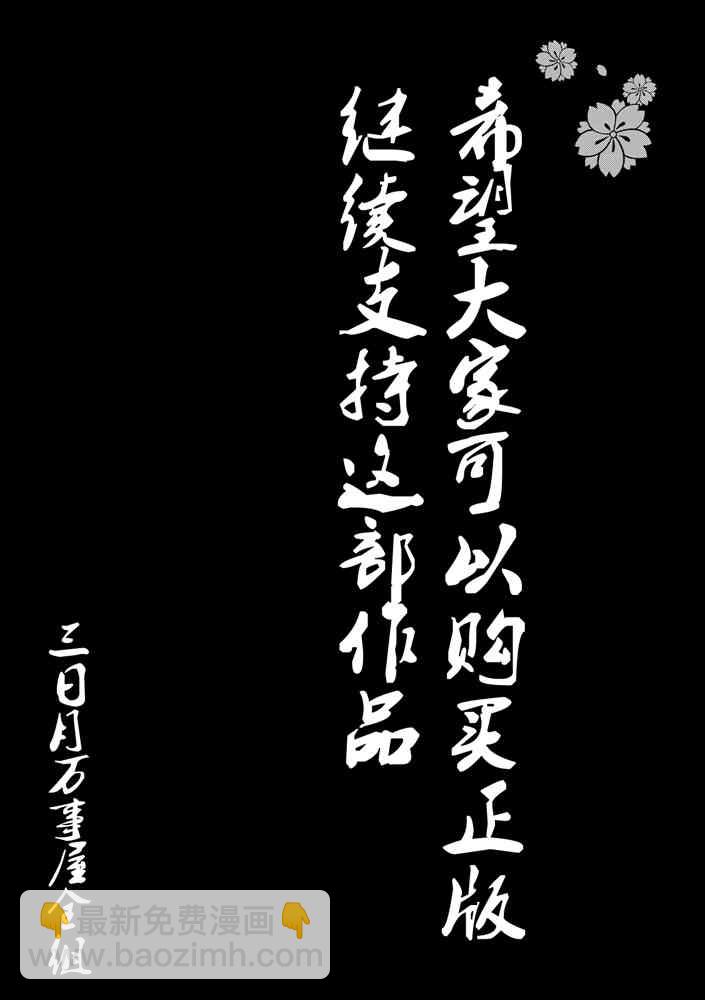 希望大家可以购买正版
继续支持这部作品
三日月万事屋全组
最新免费漫画
www.baozimh.com